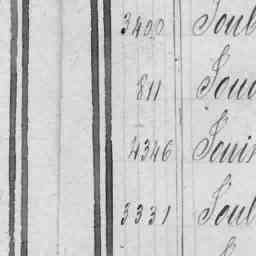 3400 Soul
811 Sou
4346 Soui
3331 Soul